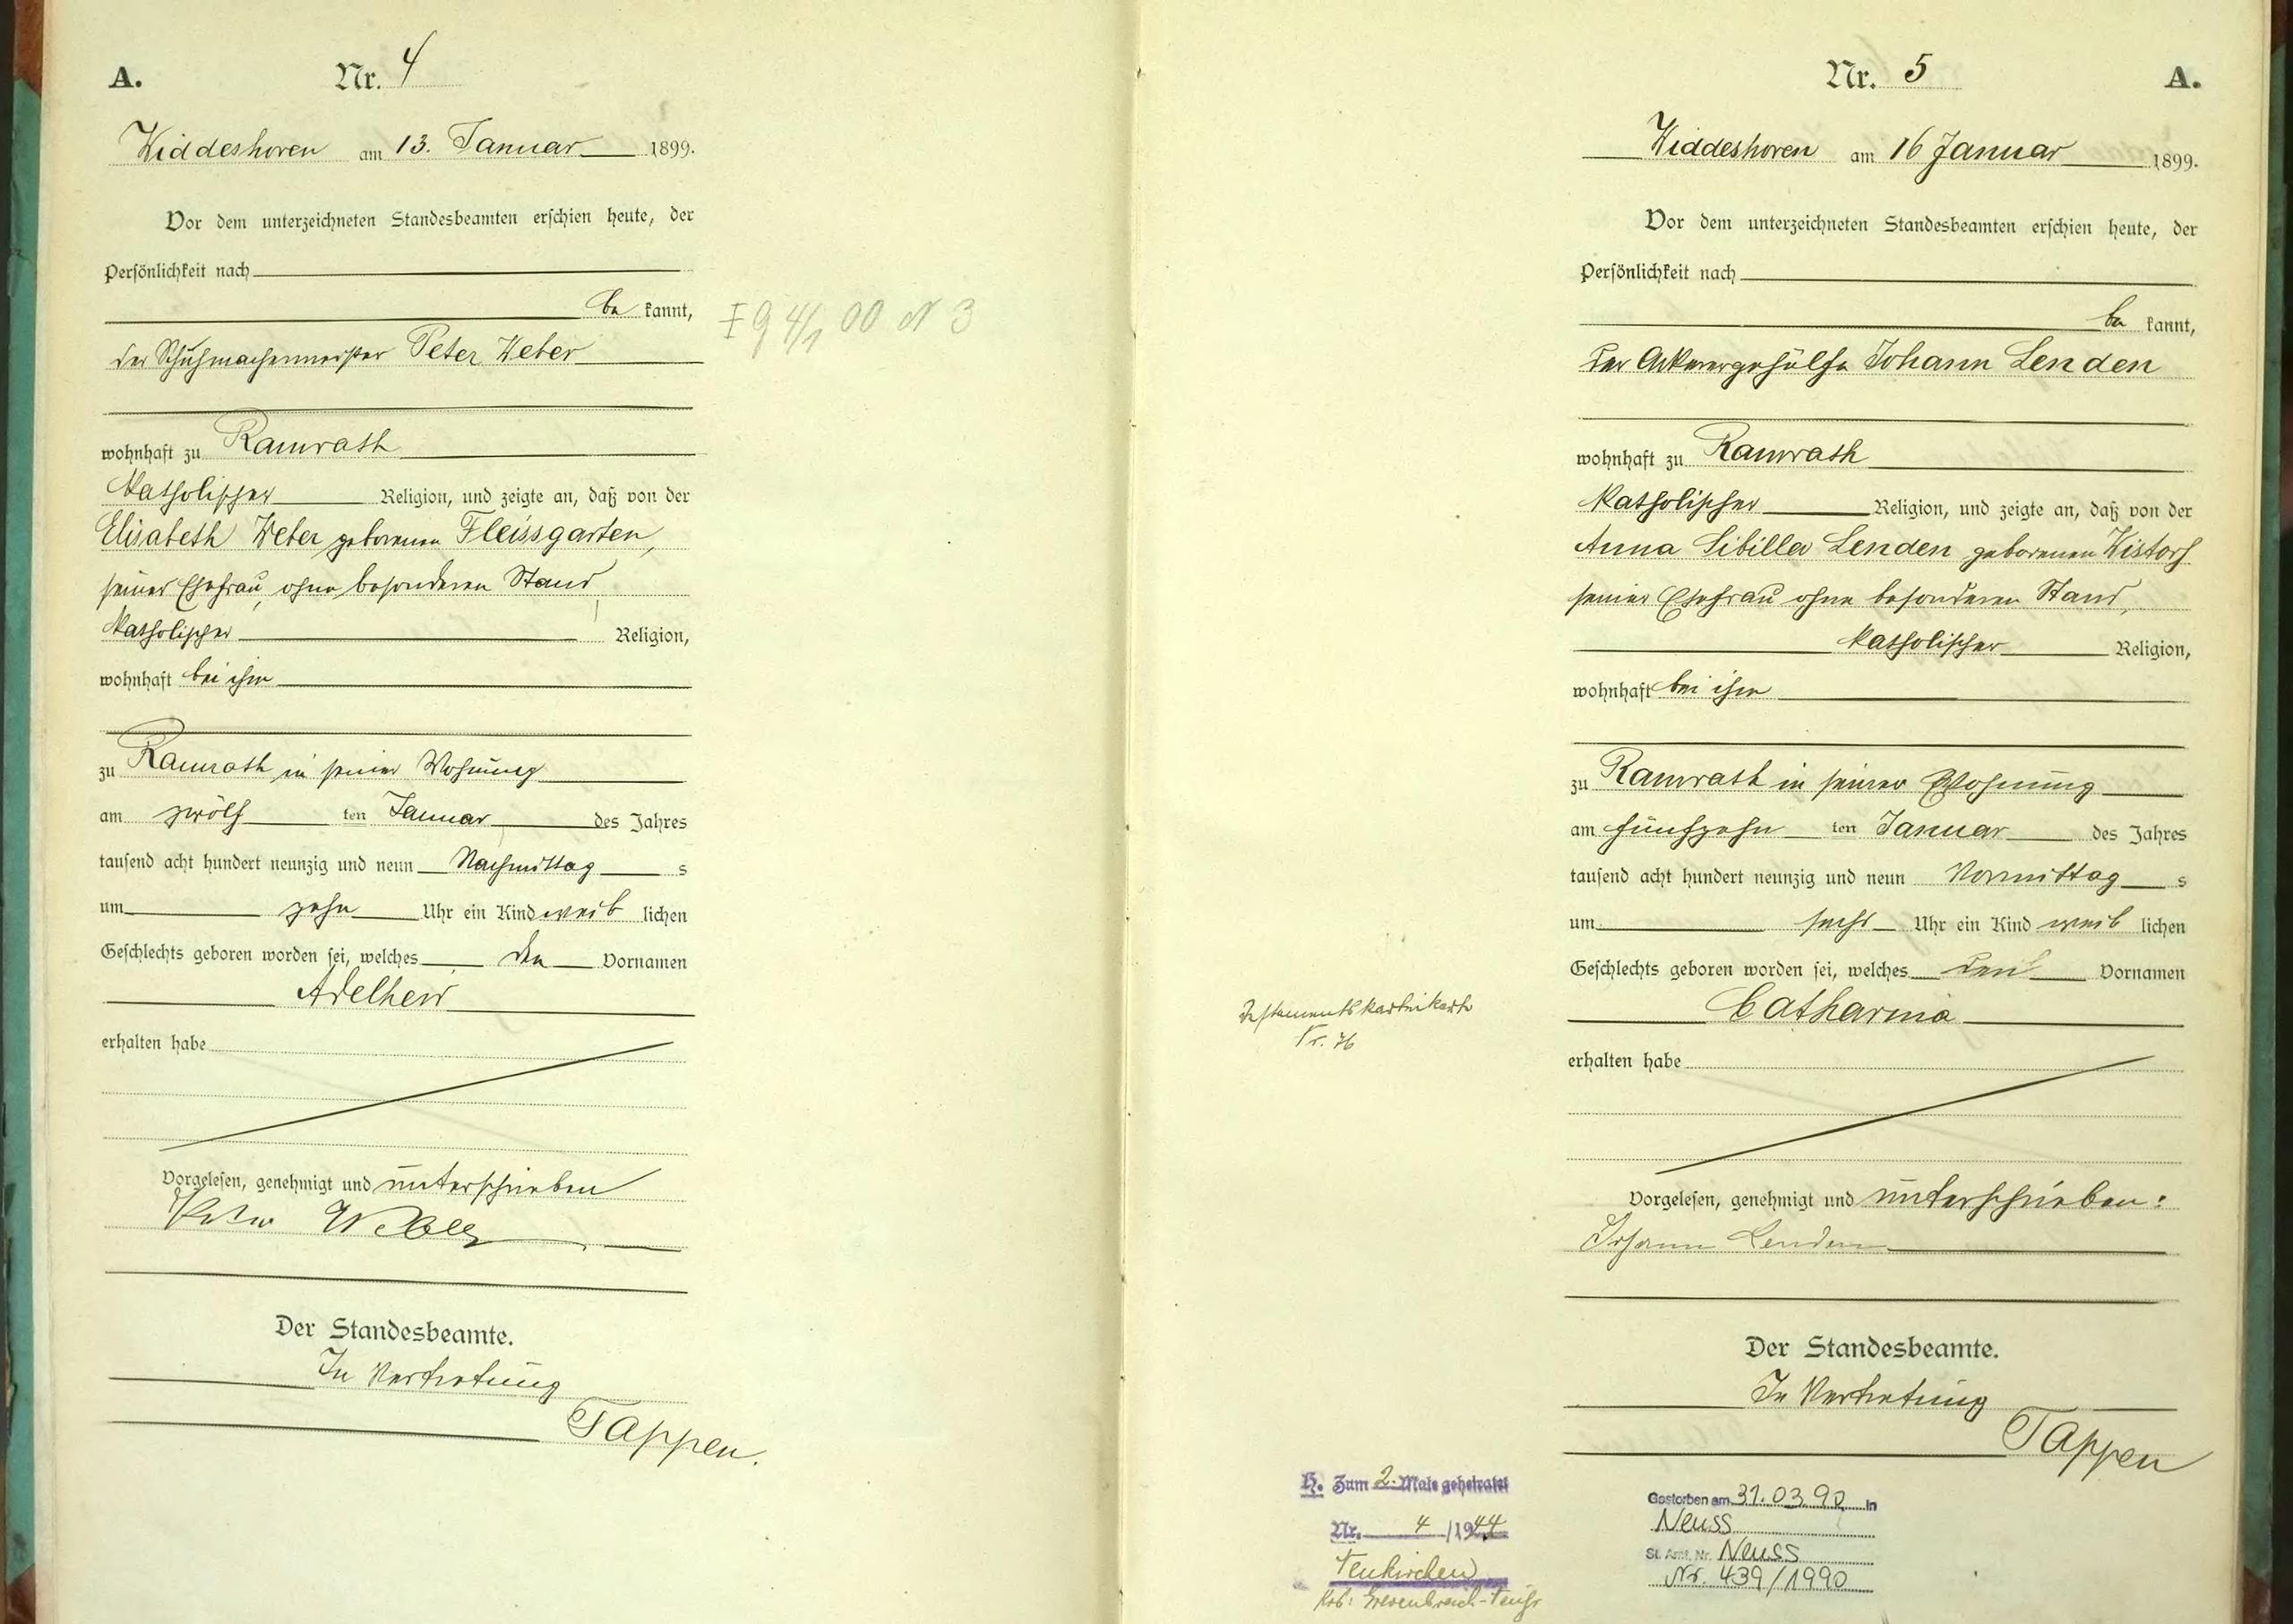 A. Nr. 4
Widdeshoven am 13. Januar 1899.
Vor dem unterzeichneten Standesbeamten erschien heute, der
Persönlichkeit nach
be kannt,
der Schuhmachermeister Peter Weber
wohnhaft zu Ramrath
katholischer Religion, und zeigte an, daß von der
Elisabeth Weber geborenen Fleissgarten,
seiner Ehefrau, ohne besonderen Stand,
katholischer Religion,
wohnhaft bei ihm
zu Ramrath in seiner Wohnung
am zwölf ten Januar des Jahres
tausend acht hundert neunzig und neun Nachmittag s
um zehn Uhr ein Kind weib lichen
Geschlechts geboren worden sei, welches den Vornamen
Adelheid
erhalten habe
Vorgelesen, genehmigt und unterschrieben
Peter Weber
Der Standesbeamte.
In Vertretung
Tappen.
4/1 00 N 3
Nr. 5 A.
Widdeshoven am 16 Januar 1899.
Vor dem unterzeichneten Standesbeamten erschien heute, der
Persönlichkeit nach
be kannt,
der Ackerergehülfe Johann Lenden
wohnhaft zu Ramrath
katholischer Religion, und zeigte an, daß von der
Anna Sibilla Lenden geborenen Wistorf
seiner Ehefrau ohne besonderen Stand,
katholischer Religion,
wohnhaft bei ihm
zu Ramrath in seiner Wohnung
am fünfzehn ten Januar des Jahres
tausend acht hundert neunzig und neun Vormittag s
um sechs Uhr ein Kind weib lichen
Geschlechts geboren worden sei, welches den Vornamen
Catharina
erhalten habe
Vorgelesen, genehmigt und unterschrieben:
Johann Lenden
Der Standesbeamte.
In Vertretung
Tappen
Testamentskarteikarte
Nr. 76
H. Zum 2. Male geheiratet
Nr. 4 /1944
Neukirchen
Krs: Grevenbroich-Neuss
Gestorben am 31.03.90 in
Neuss
St. Amt. Nr. Neuss
Nr. 439/1990